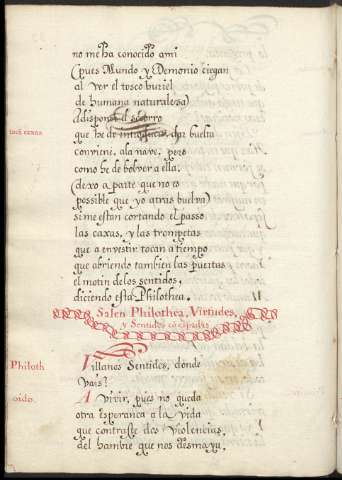 no me ha conocido ami
(pues Mundo y Demonio ciegan
al ver el tosco buriel
de humana naturaleza)
a disponer el socorro
que he de dar buelta
conviene, ala nave, pero
como he de bolver a ella,
(dexo a parte que no es
possible que yo atras buelva)
si me estan cortando el passo
las caxas, y las trompetas
que a envestir tocan a tiempo
que abriendo tambien las puertas
el motin delos sentidos,
diciendo està Philothea.
Salen Philothea, Virtudes,
y Sentidos cõ espadas
Philoth
Villanos Sentidos, donde
vais?
oido.
A vivir, pues no queda
otra esperanca a la vida
que contraste las violencias
del hambre que nos desmaya.